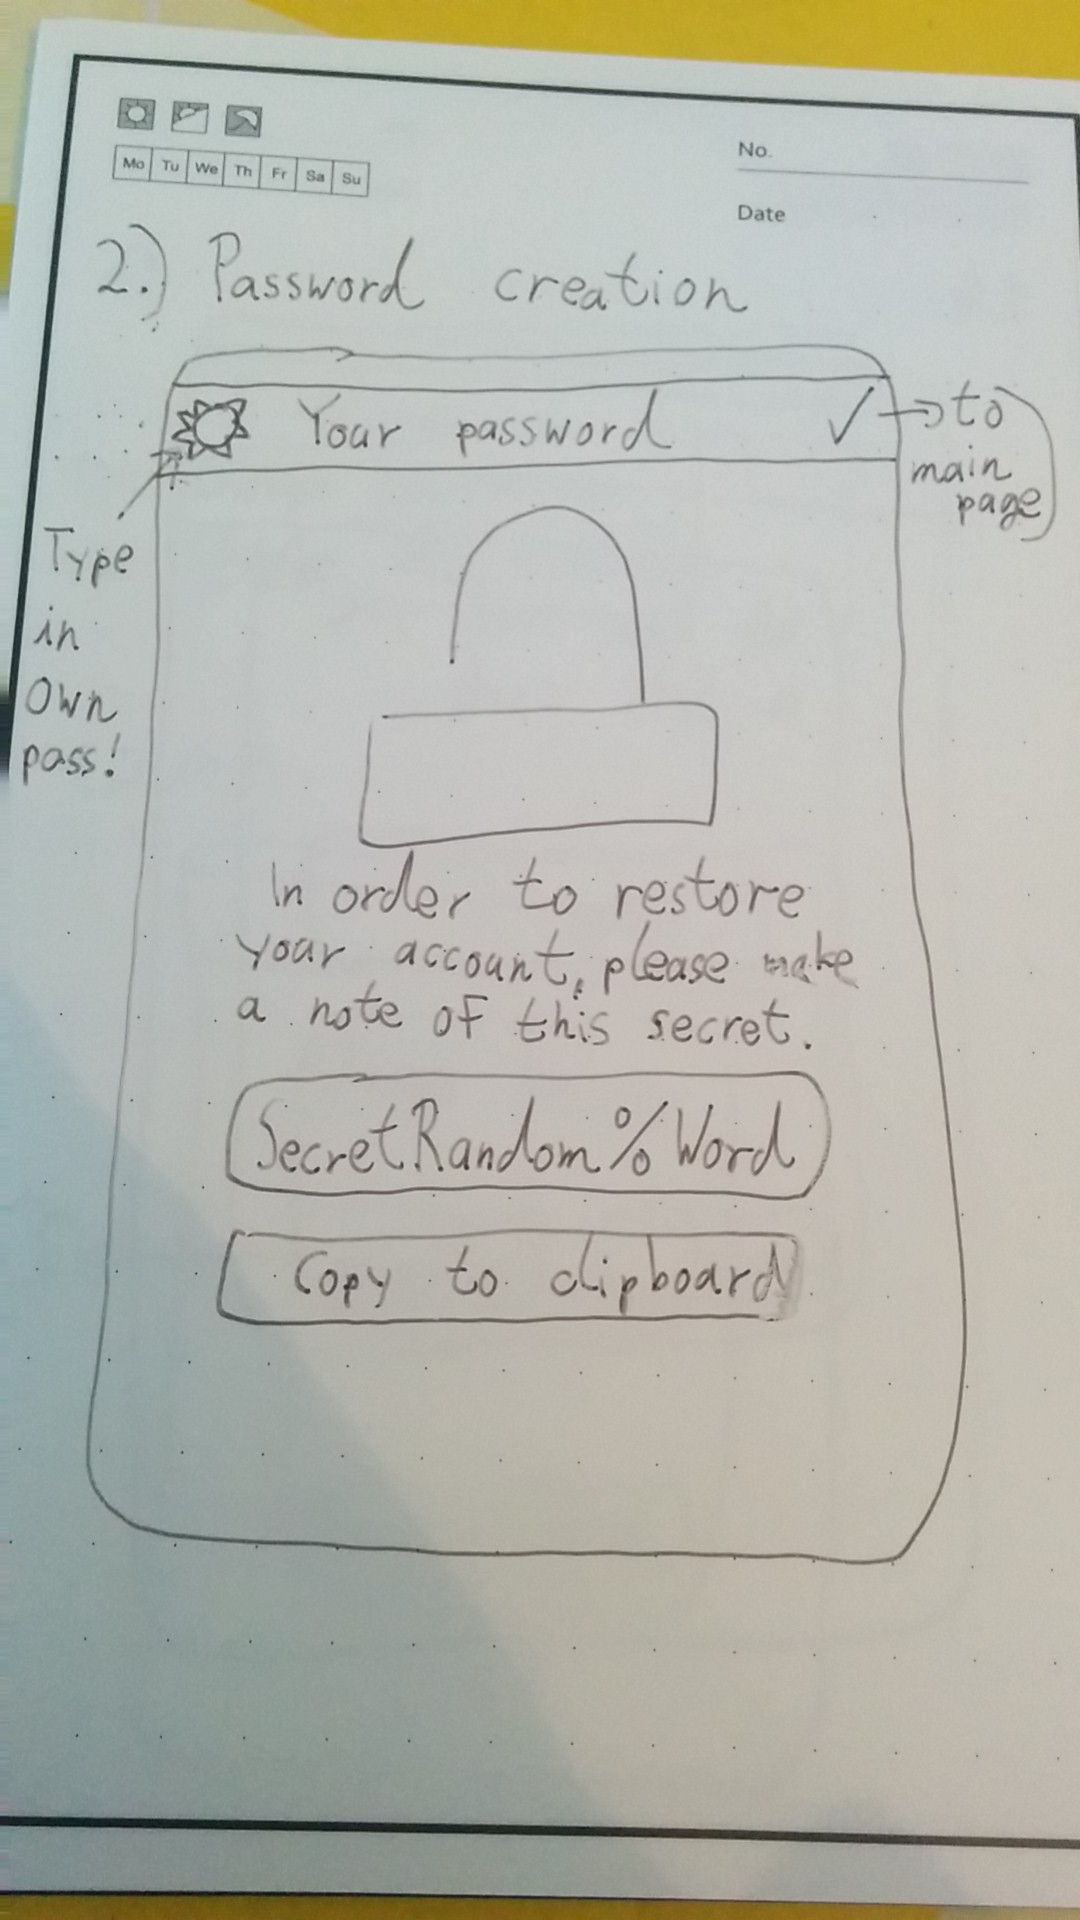 Mo Tu We Th Fr Sa Su
No.
Date
2.) Password creation
Your password ✓ → to
main
page
Type
in
own
pass!
In order to restore
your account, please make
a note of this secret.
SecretRandom%Word
Copy to clipboard